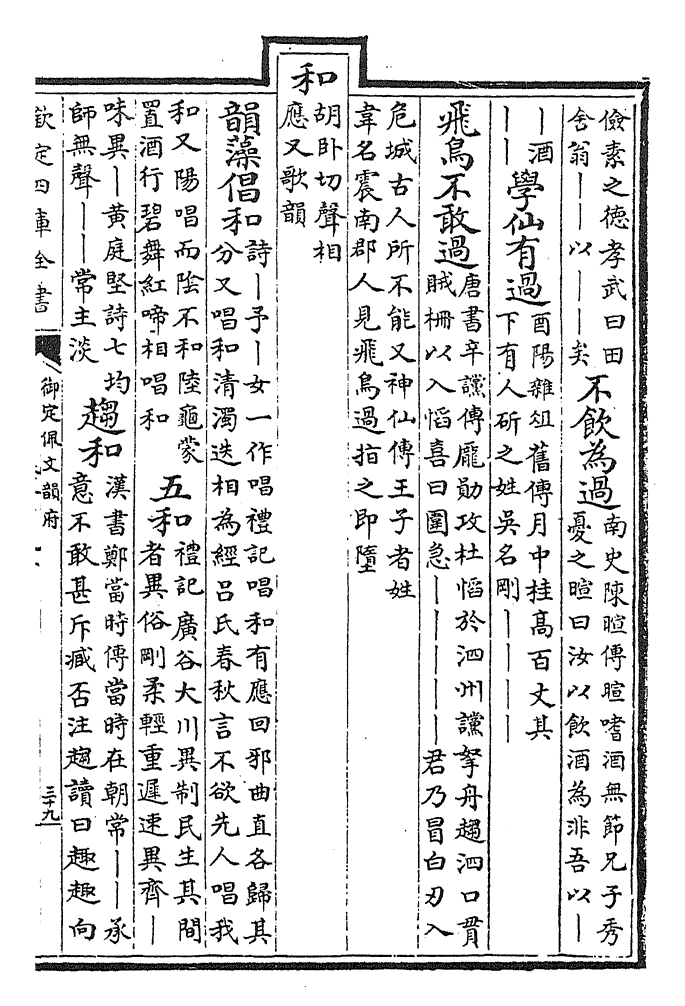 儉素之德孝武曰田
舍翁——以———矣
不飲為過
南史陳暄傳暄嗜酒無節兄子秀
憂之暄曰汝以飲酒為非吾以—
—酒
——
學仙有過
酉陽雜俎舊傳月中桂高百丈其
下有人斫之姓吳名剛————
飛鳥不敢過
唐書辛讜傳龐勛攻杜慆於泗州讜拏舟趨泗口貫
賊柵以入慆喜曰圍急—————君乃冒白刃入
危城古人所不能又神仙傳王子者姓
韋名震南郡人見飛鳥過指之即墮
和
胡卧切聲相
應又歌韻
韻藻
倡和
詩—予—女一作唱禮記唱和有應回邪曲直各歸其
分又唱和清濁迭相為經呂氏春秋言不欲先人唱我
和又陽唱而陰不和陸龜蒙
置酒行碧舞紅啼相唱和
五和
禮記廣谷大川異制民生其間
者異俗剛柔輕重遲速異齊—
味異—黃庭堅詩七均
師無聲——常主淡
趨和
漢書鄭當時傳當時在朝常——承
意不敢甚斥臧否注趨讀曰趣趣向
欽定四庫全書
御定佩文韻府
三十九